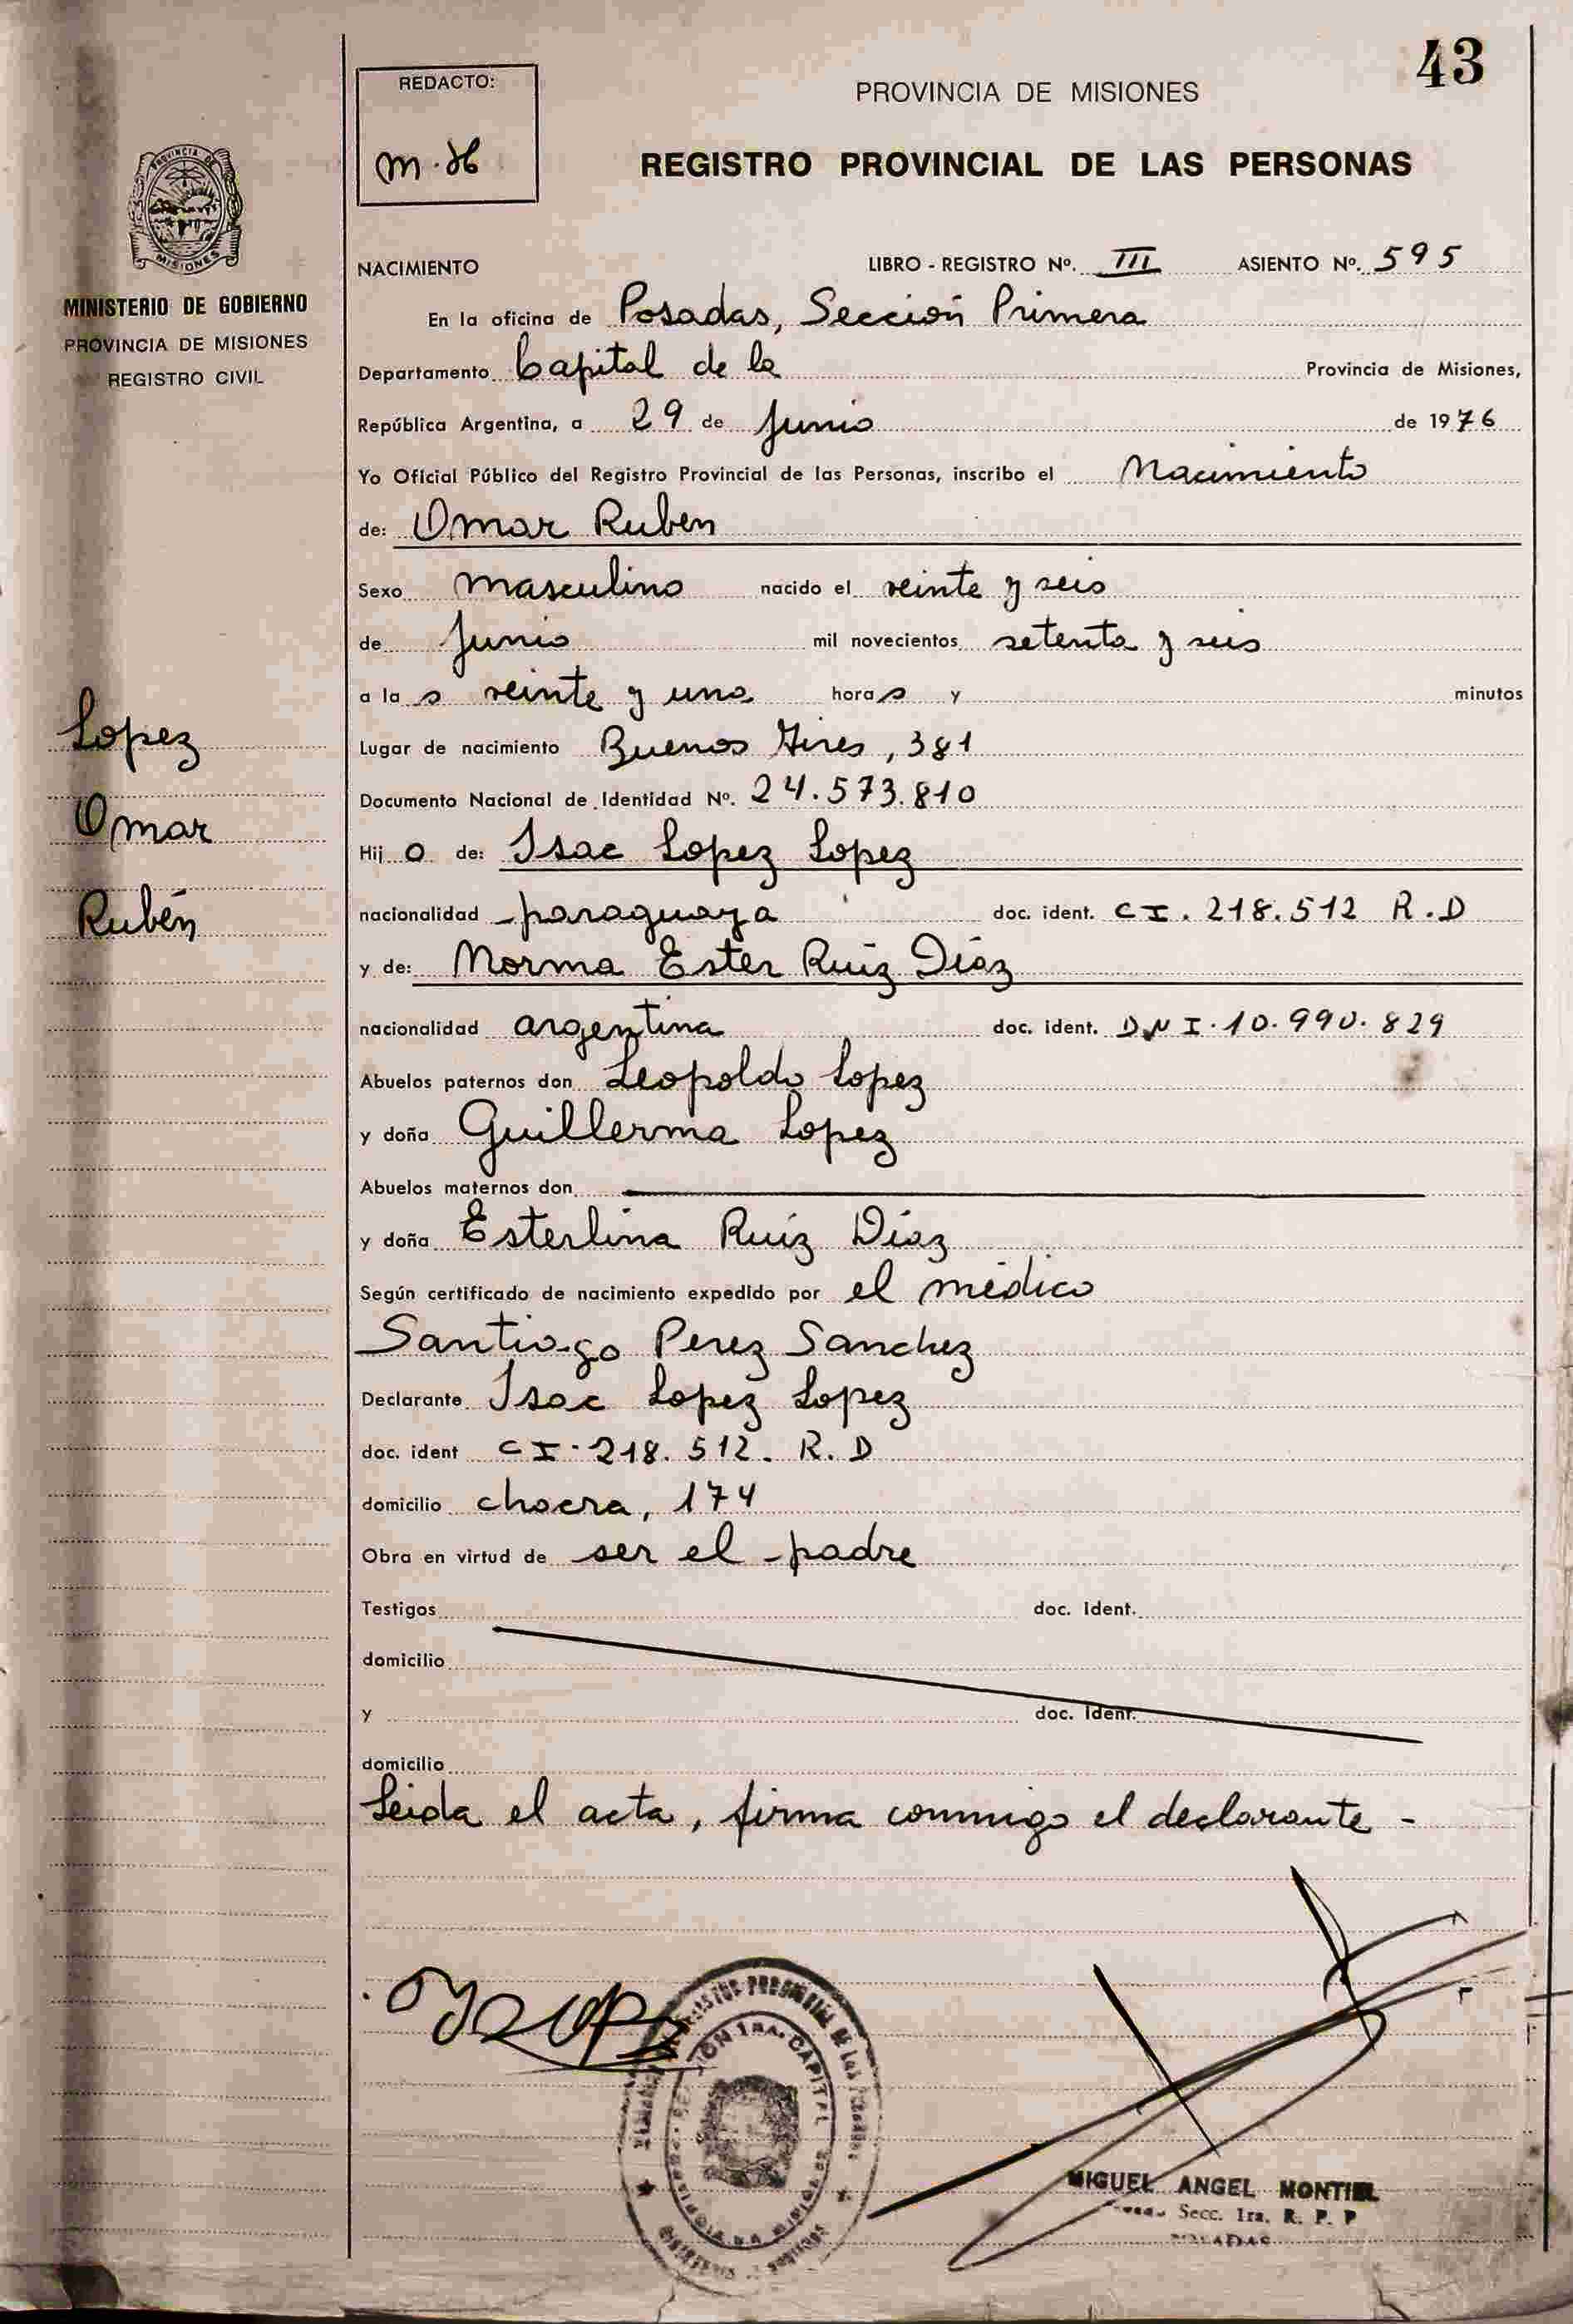 43
REDACTO:
PROVINCIA DE MISIONES
REGISTRO PROVINCIAL DE LAS PERSONAS
PROVINCIA DE
MISIONES
MINISTERIO DE GOBIERNO
PROVINCIA DE MISIONES
REGISTRO CIVIL
NACIMIENTO LIBRO - REGISTRO Nº. III ASIENTO Nº. 595
En la oficina de Posadas, Sección Primera
Departamento Capital de la Provincia de Misiones,
República Argentina, a 29 de Junio de 1976
Yo Oficial Público del Registro Provincial de las Personas, inscribo el Nacimiento
de: Omar Ruben
Sexo masculino nacido el veinte y seis
de Junio mil novecientos setenta y seis
a la s veinte y una hora s y minutos
Lopez
Lugar de nacimiento Buenos Aires, 381
Documento Nacional de Identidad Nº. 24.573.810
Omar
Hij o de: Isac Lopez Lopez
Rubén
nacionalidad paraguaya doc. ident. CI. 218.512 R.D
y de: Norma Ester Ruiz Diaz
nacionalidad argentina doc. ident. DNI. 10.990.829
Abuelos paternos don Leopoldo Lopez
y doña Guillerma Lopez
Abuelos maternos don
y doña Esterlina Ruiz Diaz
Según certificado de nacimiento expedido por el médico
Santiago Perez Sanchez
Declarante Isac Lopez Lopez
doc. ident CI. 218.512. R.D
domicilio chacra, 174
Obra en virtud de ser el padre
Testigos doc. ident.
domicilio
y doc. ident.
domicilio
Leida el acta, firma conmigo el declarante -
MIGUEL ANGEL MONTIEL
Secc. 1ra. R. P. P
POSADAS